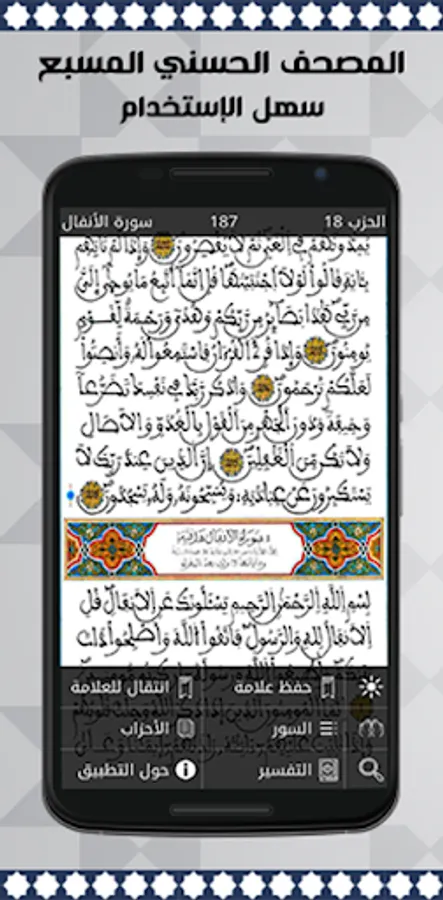 المصحف الحسني المسبع
سهل الإستخدام
الحزب 18 187 سورة الأنفال
يمدونهم في الغي ثم لا يقصرون وإذا لم تاتهم
بـٔاية قالوا لولا اجتبيتها قل انما أتبع ما يوحى إلي
من ربي هذا بصائر من ربكم وهدى ورحمة لقوم
يومنون وإذا قرئ القرءان فاستمعوا له وأنصتوا
لعلكم ترحمون واذكر ربك في نفسك تضرعا
وخيفة ودون الجهر من القول بالغدو والاصال
ولا تكن من الغفلين إن الذين عند ربك لا
يستكبرون عن عبادته ويسبحونه وله يسجدون
سورة الانفال مدنية
بسم الله الرحمن الرحيم يسـٔلونك عن الانفال قل
الانفال لله والرسول فاتقوا الله وأصلحوا ذات
حفظ علامة انتقال للعلامة
السور الأحزاب
التفسير حول التطبيق